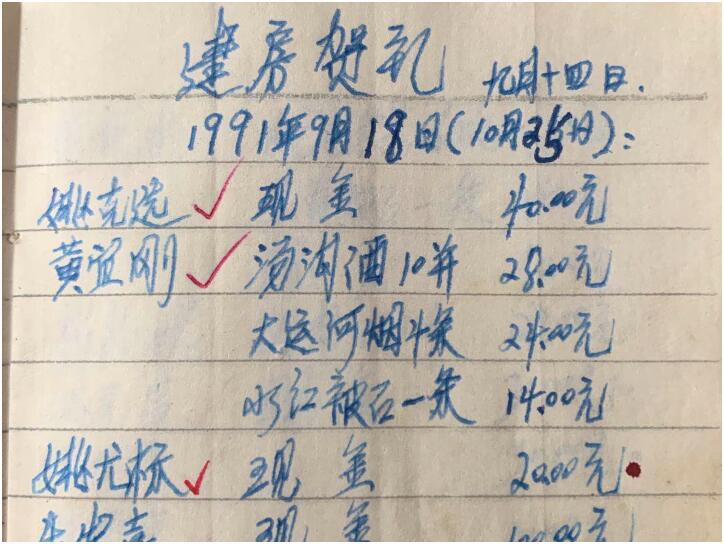 建房贺礼 九月十四日.
1991年9月18日(10月25日):
姚克选 现金 40.00元
黄宜刚 汤沟酒10并 28.00元
大运河烟4条 24.00元
水江被面一条 14.00元
姚尤标 现金 20.00元
现金 100.00元